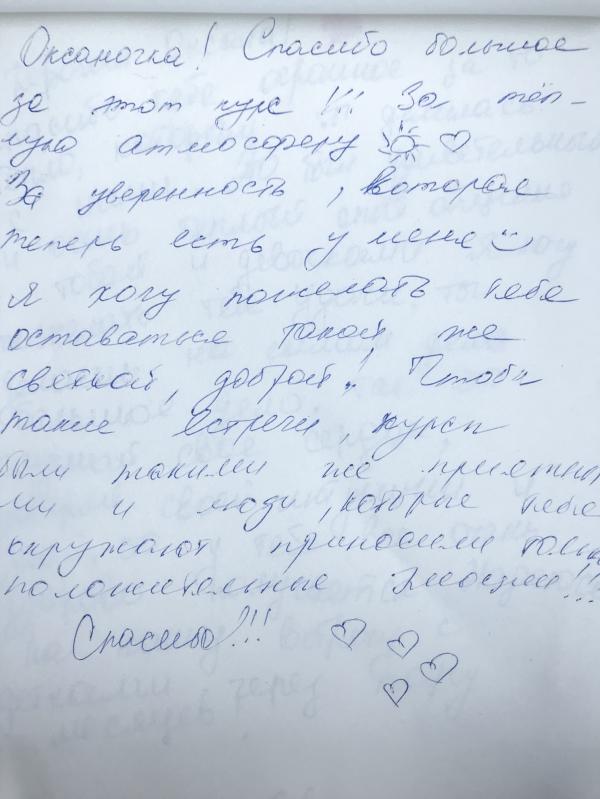 Оксаночка! Спасибо большое
за этот курс!!! За тёп-
лую атмосферу
За уверенность, которая
теперь есть у меня
Я хочу пожелать тебе
оставаться такой же
светлой, доброй! Чтобы
такие встречи, курсы
были такими же приятны
ми и люди, которые тебя
окружают приносили толь
положительные эмоции!!!
Спасибо!!!